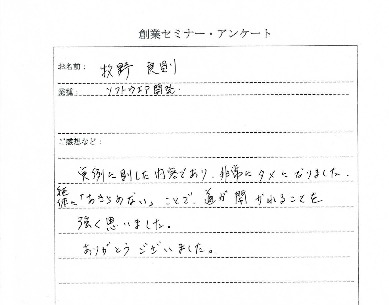 創業セミナー・アンケート
お名前： 牧野 良則
業種： ソフトウエア開発
ご感想など：
実例に則した内容であり、非常にタメになりました。
継続に「あきらめない」ことで、道が開かれることを
強く思いました。
ありがとうございました。